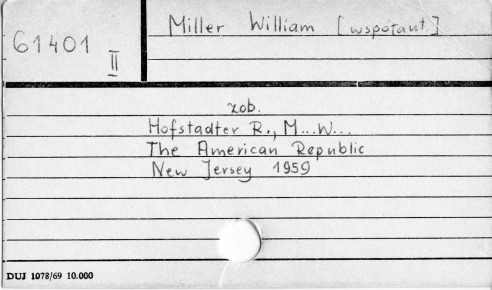 Miller William [współaut.]
61401
II
zob.
Hofstadter R., M...W...
The American Republic
New Jersey 1959
DUJ 1078/69 10.000